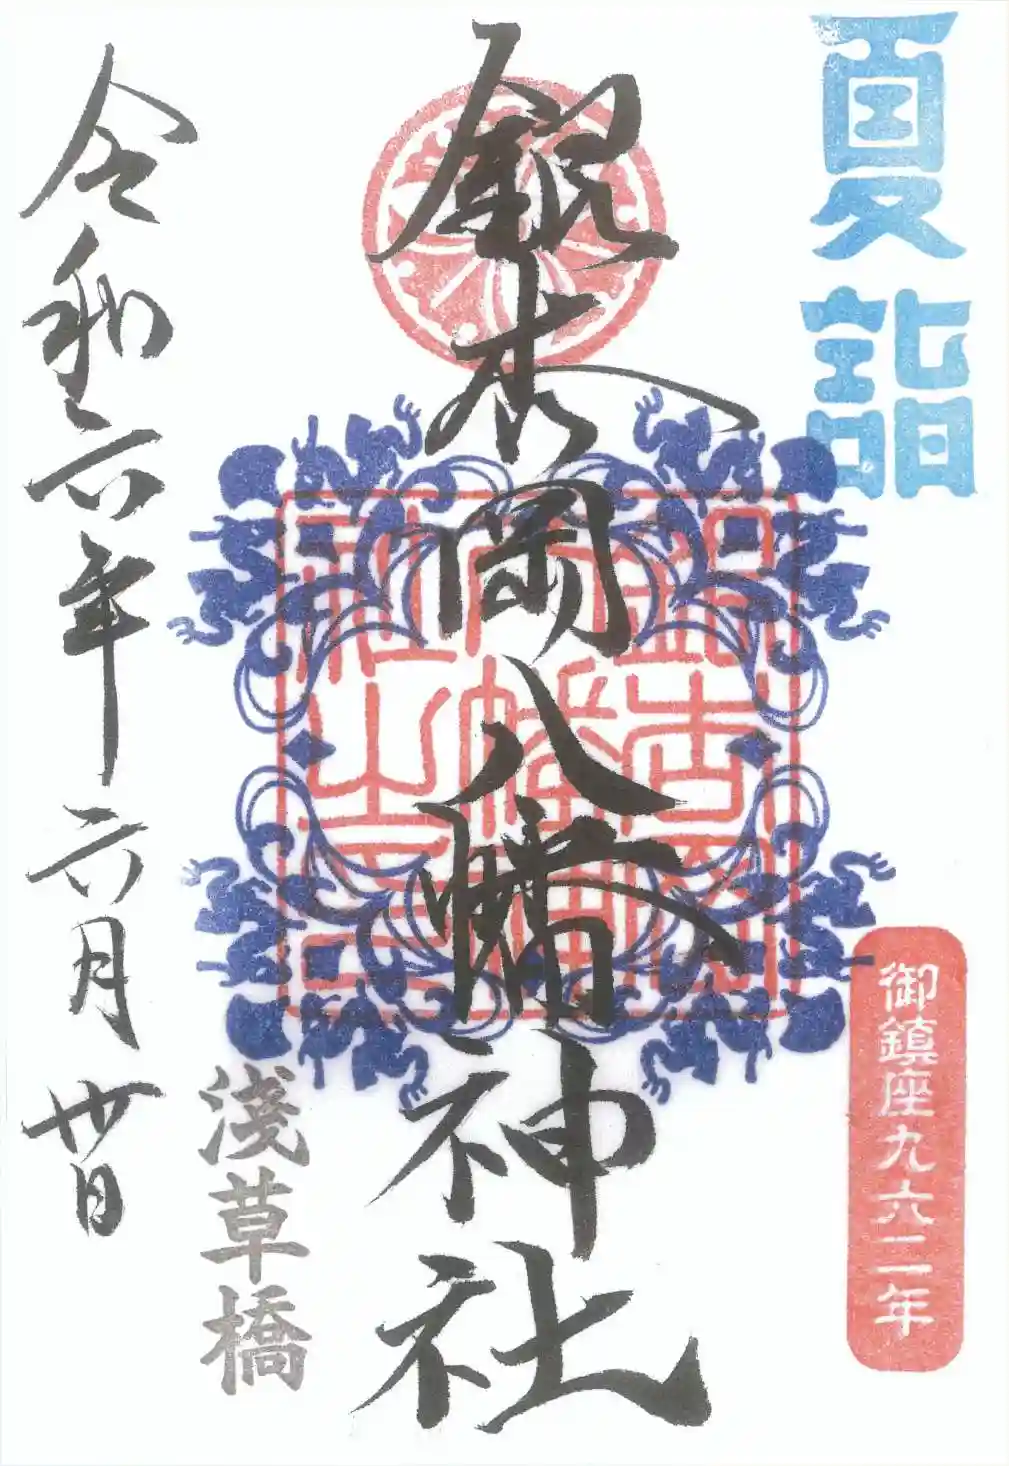 夏詣
御鎮座九六二年
銀杏岡八幡神社
銀杏岡
八幡神
社之印
淺草橋
令和六年六月卅日